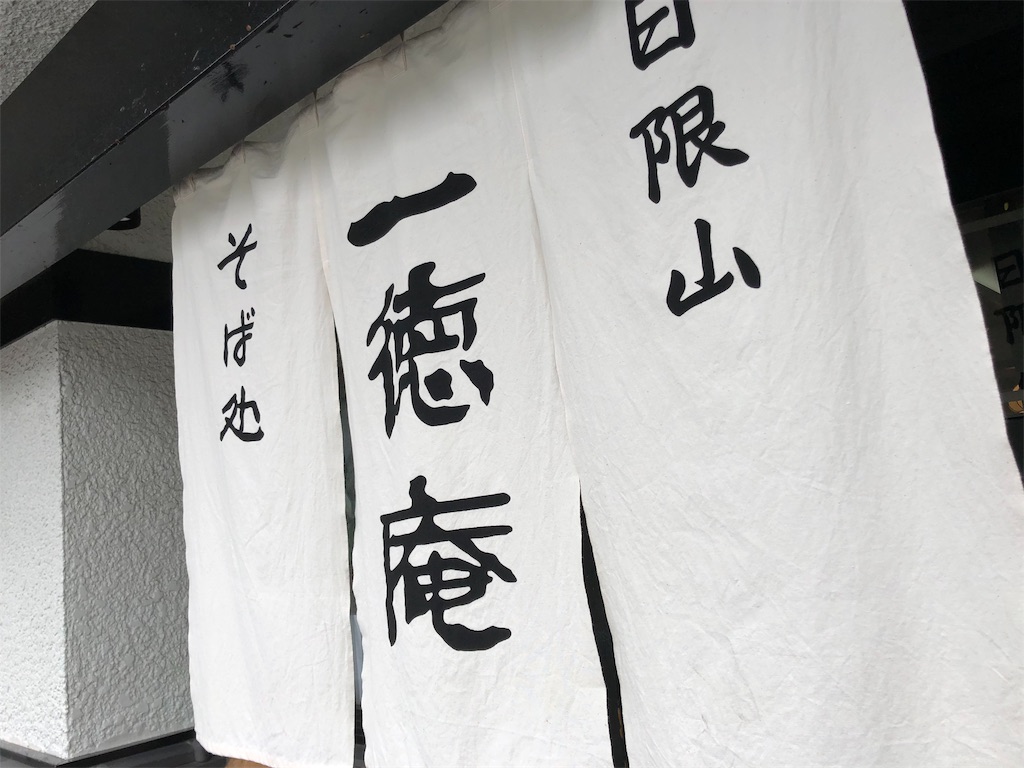 日限山
一徳庵
そば処
日限